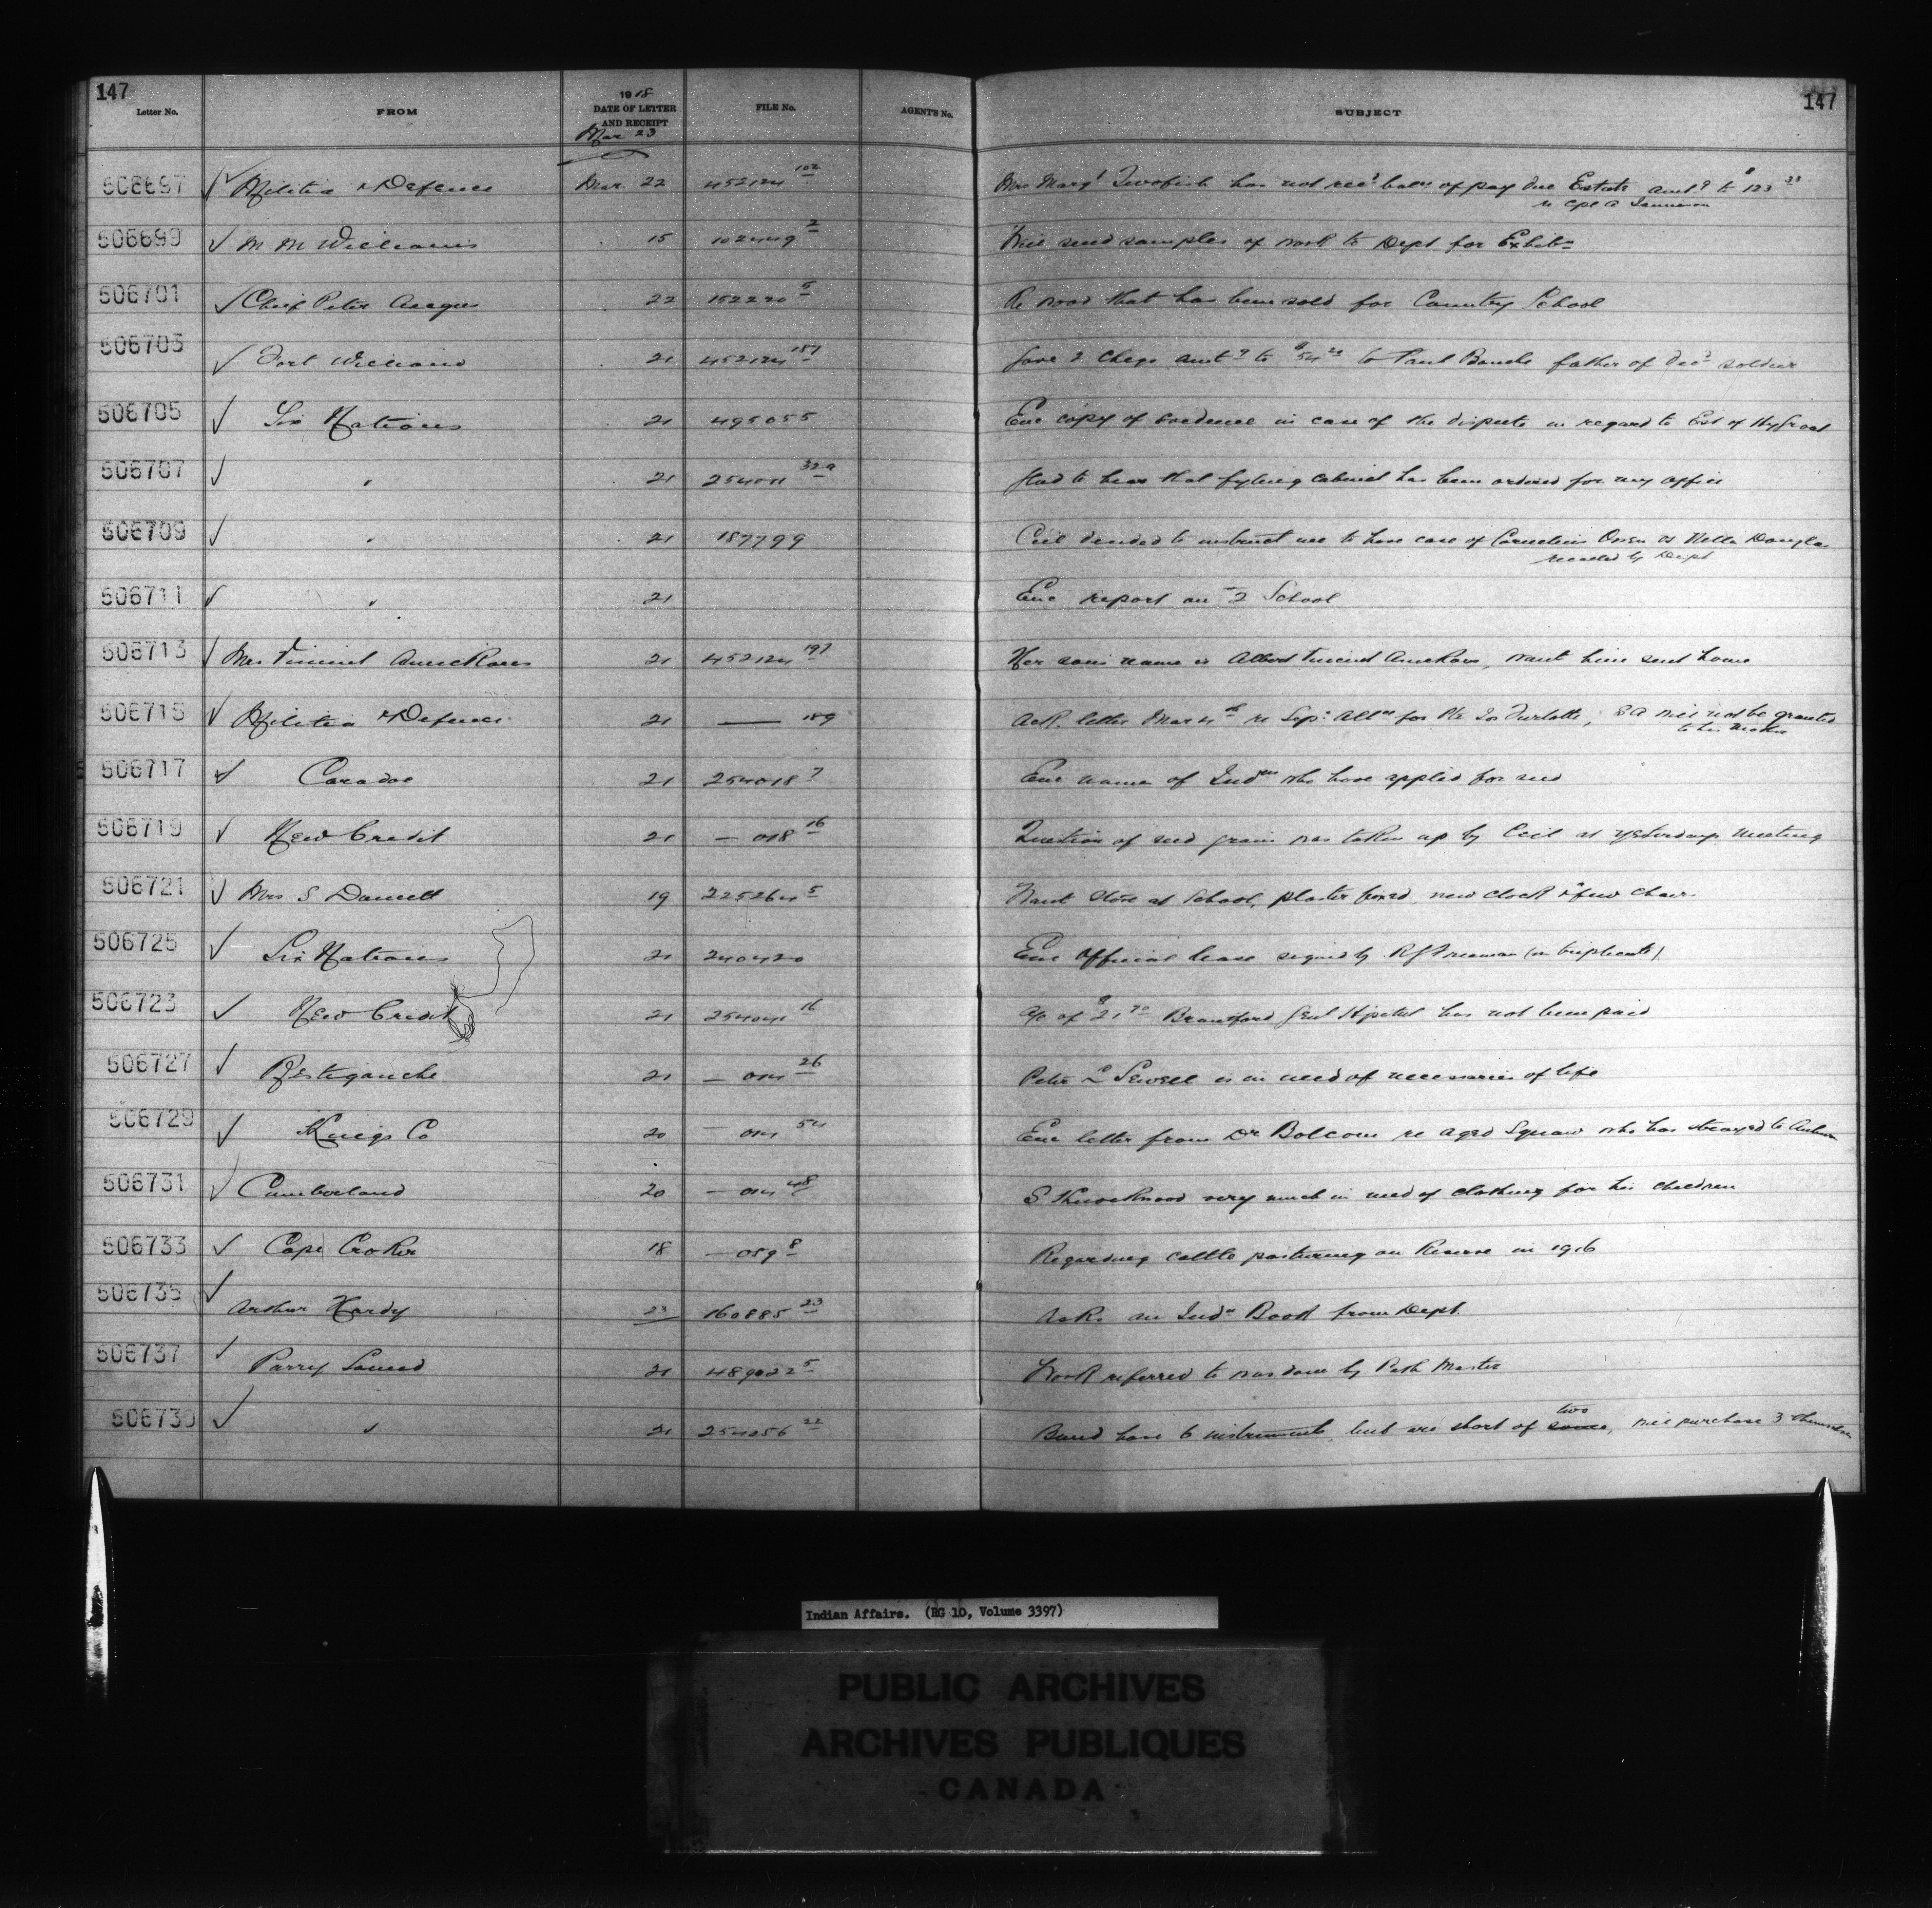 147
147
Letter No. FROM 1918 DATE OF LETTER AND RECEIPT FILE No. AGENT'S No. SUBJECT
Mar 23
506697 Militia & Defence Mar. 22 452124 102 Mrs Margt Twofish has not recd balce of pay due Estate amtg to $123 33
re Cpl A Jamieson
506699 M M Williams 15 102449 2 Will send samples of work to Dept for Exhibn
506701 Chief Peter Angus 22 152220 5 Re wood that has been sold for Country School
506703 Fort William 21 452124 Gave 2 Cheqs amtg to $54 to Paul father of decd soldier
506705 Six Nations 21 495055 Enc copy of evidence in case of the dispute in regard to Est of
506707 " 21 254011 32a Glad to hear that fyling cabinet has been ordered for my office
506709 " 21 187799 Ccil decided to instruct me to have case of Cornelius vs Douglas
by Dept
506711 " 21 Enc report on 2 School
506713 Mrs 21 452124 197 Her sons name is Albert Vincent, want him sent home
506715 Militia & Defence 21 — 189 Ack. letter Mar 4th re Sepn Allce for Pte Jos, S A will not be granted
to his Mother
506717 Caradoc 21 254018 7 Enc name of Indns who have applied for seed
506719 New Credit 21 — 018 16 Question of seed grain was taken up by Ccil at yesterdays meeting
506721 Mrs S 19 225264 5 Want stove at School, plaster fixed, new clock & few chairs
506725 Six Nations 21 240420 Enc Official lease signed by R J Freeman (in triplicate)
506723 New Credit 21 254041 16 a/c of $21 70 Brantford Genl Hospital has not been paid
506727 Restigouche 21 — 041 26 Peter L Sewell is in need of necessaries of life
506729 Kings Co 20 — 041 54 Enc letter from Dr Balcom re aged Squaw who has strayed to
506731 Cumberland 20 — 041 48 S Knockwood very much in need of clothing for his children
506733 Cape Croker 18 — 059 8 Regarding cattle pasturing on Reserve in 1916
506735 Arthur Hardy 23 160885 23 Ack. an Indn Book from Dept.
506737 Parry Sound 21 489022 5 Work referred to was done by Path Master
506739 " 21 254256 22 Band have 6 instruments, but are short of some two, will purchase 3 themselves
Indian Affairs. (RG 10, Volume 3397)
PUBLIC ARCHIVES
ARCHIVES PUBLIQUES
CANADA